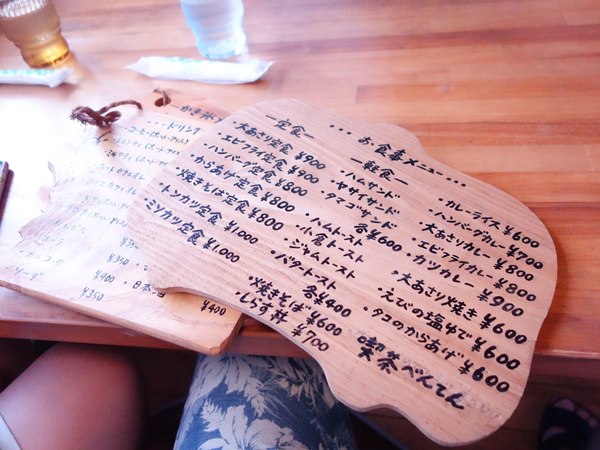 ・・・お食事メニュー・・・
―定食―
大あさり定食 ¥900
エビフライ定食 ¥900
ハンバーグ定食 ¥800
からあげ定食 ¥800
焼きそば定食 ¥800
・トンカツ定食 ¥1,000
・ミソカツ定食 ¥1,000
―軽食―
・ハムサンド
・ヤサイサンド
・タマゴサンド
各¥600
・ハムトースト
・小倉トースト
・ジャムトースト
・バタートースト
各¥400
・焼きそば ¥600
・しらす丼 ¥700
・カレーライス ¥600
・ハンバーグカレー ¥700
大あさりカレー ¥800
・エビフライカレー ¥800
・カツカレー ¥900
・大あさり焼き ¥600
・えびの塩ゆで ¥600
・タコのからあげ ¥600
喫茶べんてん
・・・ドリンク
コーヒー(ホット・アイス)
¥350
¥400
¥350
¥350
・日本酒
¥400